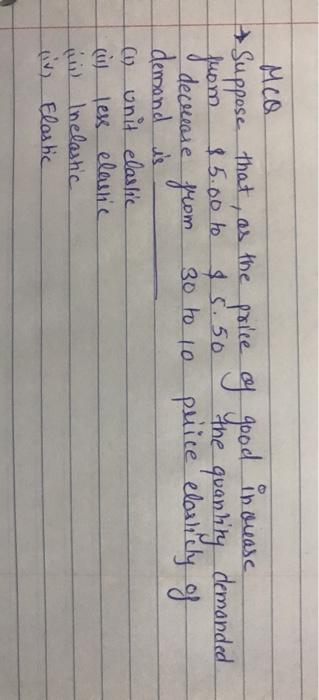 MCQ
→ Suppose that, as the price of good increase
from $5.00 to $5.50 the quantity demanded
decrease from 30 to 10 price elasticity of
demand is ______
(i) unit elastic
(ii) less elastic
(iii) Inelastic
(iv) Elastic